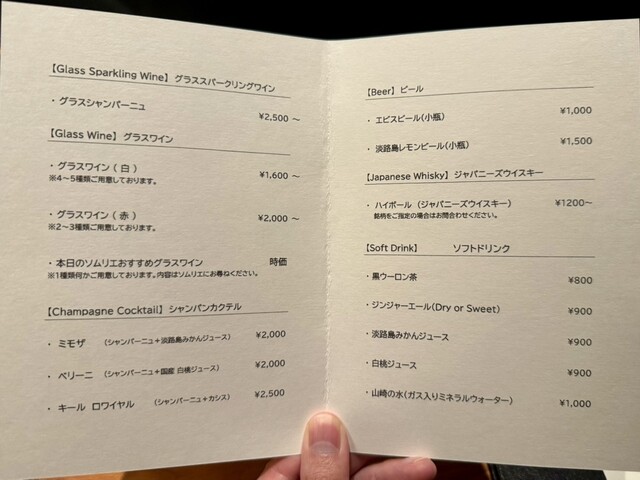 【Glass Sparkling Wine】 グラススパークリングワイン
・ グラスシャンパーニュ ¥2,500 ～
【Glass Wine】 グラスワイン
・ グラスワイン ( 白 ) ¥1,600 ～
※4～5種類ご用意しております。
・ グラスワイン ( 赤 ) ¥2,000 ～
※2～3種類ご用意しております。
・本日のソムリエおすすめグラスワイン 時価
※1種類何かご用意しております。内容はソムリエにお尋ねください。
【Champagne Cocktail】 シャンパンカクテル
・ ミモザ (シャンパーニュ＋淡路島みかんジュース) ¥2,000
・ ベリーニ (シャンパーニュ＋国産 白桃ジュース) ¥2,000
・ キール ロワイヤル (シャンパーニュ＋カシス) ¥2,500
【Beer】 ビール
・ エビスビール(小瓶) ¥1,000
・ 淡路島レモンビール(小瓶) ¥1,500
【Japanese Whisky】 ジャパニーズウイスキー
・ ハイボール (ジャパニーズウイスキー) ¥1200～
銘柄をご指定の場合はお問合わせください。
【Soft Drink】 ソフトドリンク
・黒ウーロン茶 ¥800
・ジンジャーエール(Dry or Sweet) ¥900
・淡路島みかんジュース ¥900
・白桃ジュース ¥900
・山崎の水(ガス入りミネラルウォーター) ¥1,000